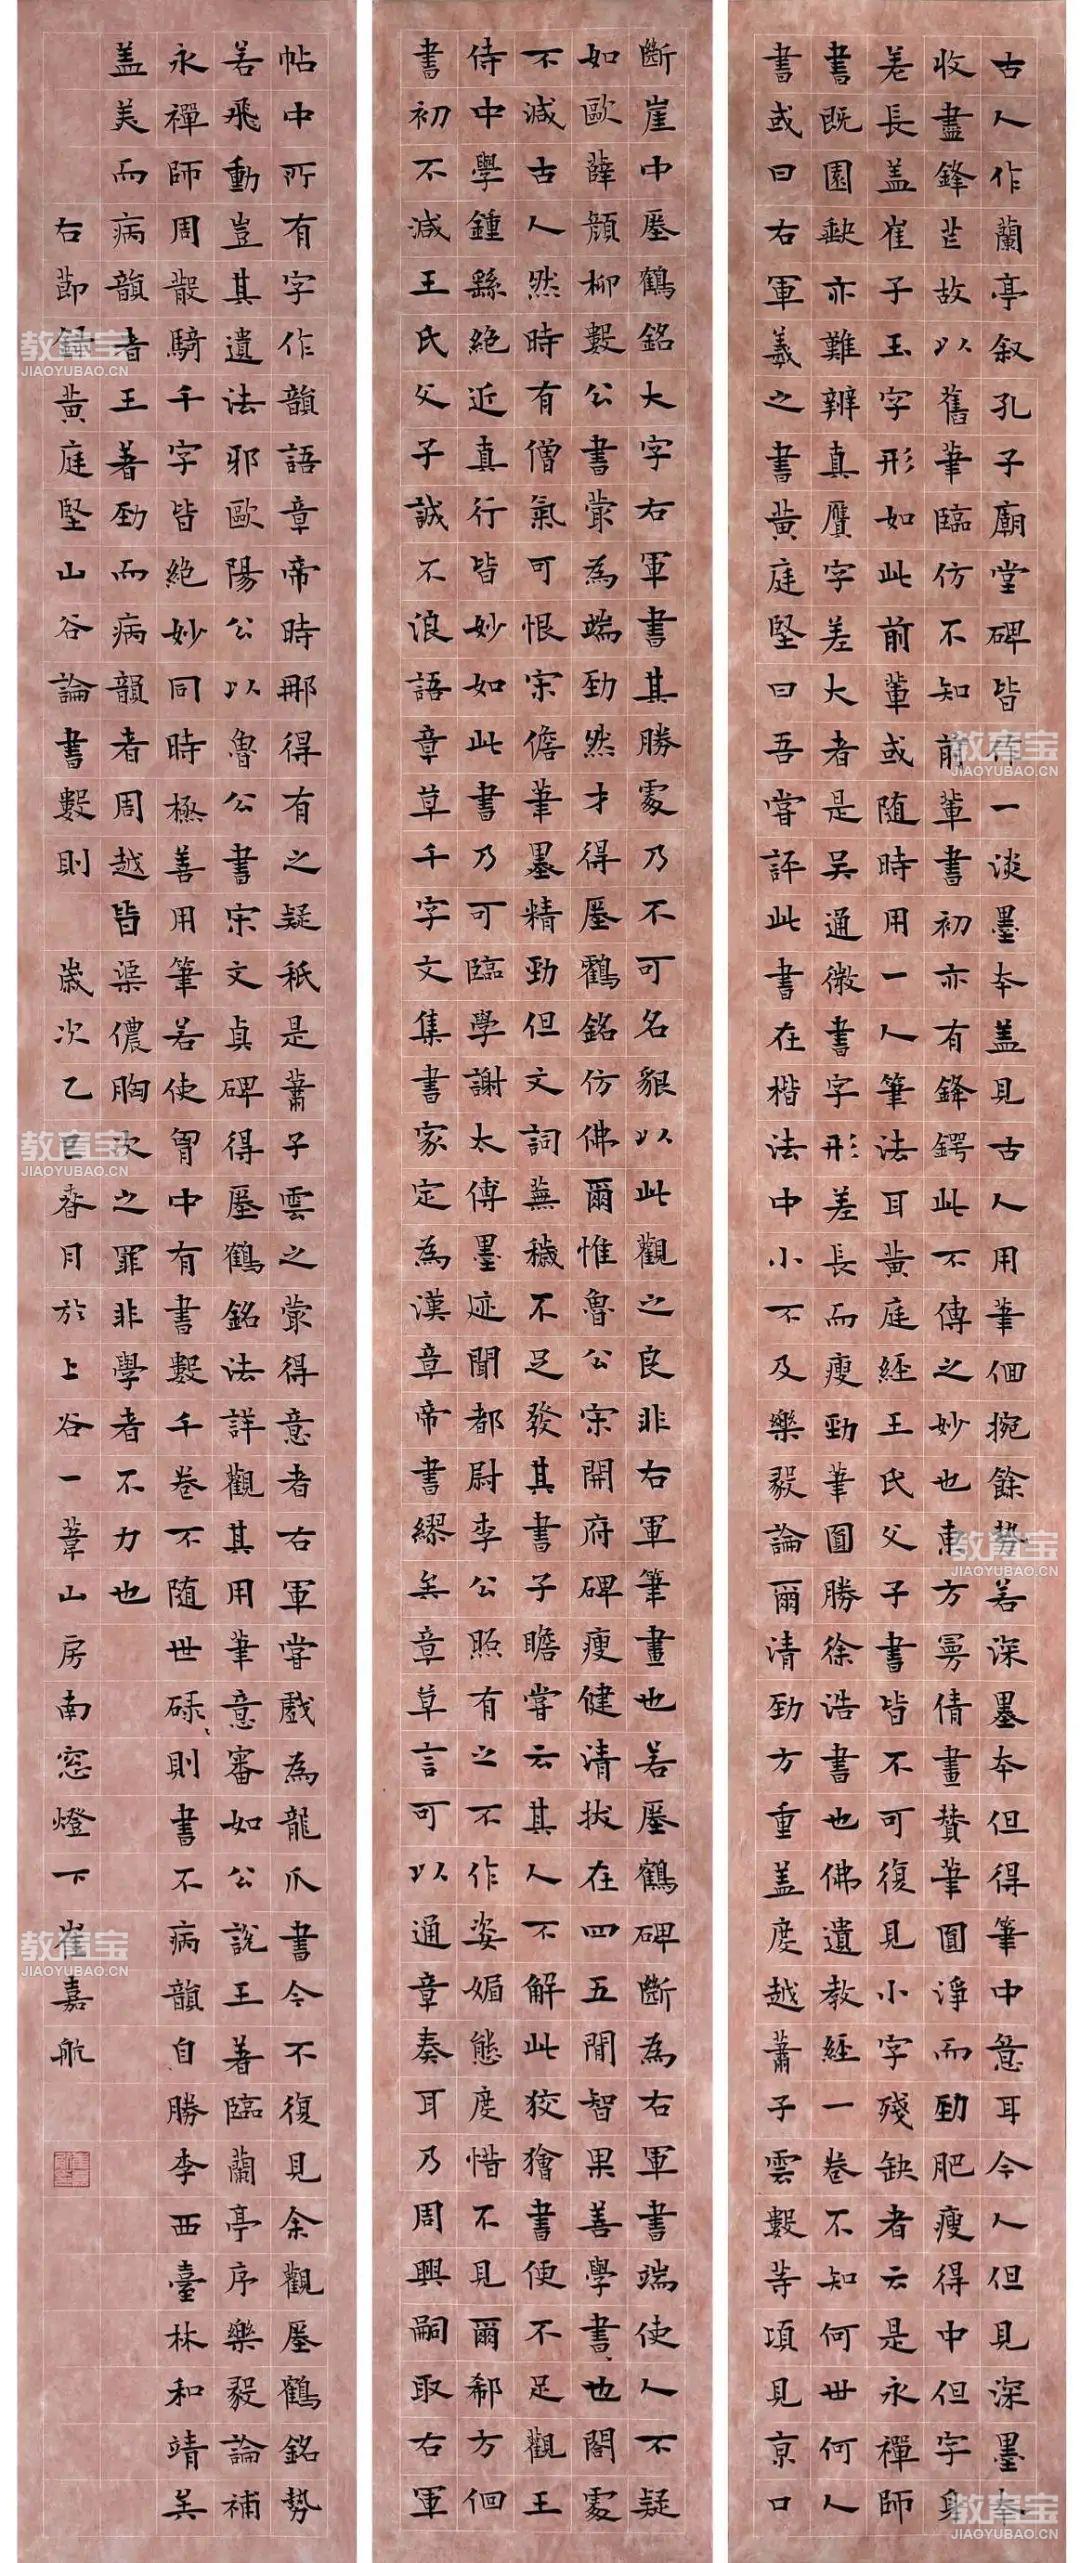 古人作蘭亭叙孔子廟堂碑皆作一淡墨本盖見古人用筆佪捥餘勢若深墨本但得筆中意耳今人但見深墨本
收盡鋒芒故以舊筆臨仿不知前輩書初亦有鋒鍔此不傳之妙也東方曼倩畫賛筆圓淨而勁肥瘦得中但字身
差長盖崔子玉字形如此前輩或随時用一人筆法耳黃庭經王氏父子書皆不可復見小字殘缺者云是永禪師
書既園缺亦難辨真贋字差大者是吴通微書字形差長而瘦勁筆圓勝徐浩書也佛遺教經一卷不知何世何人
書或曰右軍羲之書黃庭堅曰吾嘗評此書在楷法中小不及樂毅論爾清勁方重盖度越蕭子雲數等項見京口
斷崖中瘞鶴銘大字右軍書其勝處乃不可名貌以此觀之良非右軍筆畫也若瘞鶴碑斷為右軍書端使人不疑
如歐薛顏柳數公書㝡為端勁然才得瘞鸖銘仿佛爾惟魯公宋開府碑瘦健清拔在四五間智果善學書也閤處
不減古人然時有僧氣可恨宋儋筆墨精勁但文詞蕪穢不足發其書子瞻嘗云其人不解此狡獪書便不足觀王
侍中學鍾繇絕近真行皆妙如此書乃可臨學謝太傅墨迹聞都尉李公照有之不作姿媚態度惜不見爾郗方佪
書初不減王氏父子誠不浪語章草千字文集書家定為漢章帝書繆矣章草言可以通章奏耳乃周興嗣取右軍
帖中所有字作韻語章帝時那得有之疑秖是蕭子雲之㝡得意者右軍嘗戲為龍爪書今不復見余觀瘞鶴銘勢
若飛動豈其遺法邪歐陽公以魯公書宋文貞碑得瘞鶴銘法詳觀其用筆意審如公說王著臨蘭亭序樂毅論補
永禪師周散騎千字皆絕妙同時極善用筆若使胷中有書數千卷不随世碌、則書不病韻自勝李西臺林和靖美
盖美而病韻者王著勁而病韻者周越皆渠儂胸次之罪非學者不力也
右節錄黃庭堅山谷論書數則 歲次乙巳春月於上谷一葦山房南窓燈下崔嘉航
教育宝
JIAOYUBAO.CN
教育宝
JIAOYUBAO.CN
教育宝
JIAOYUBAO.CN
教育宝
JIAOYUBAO.CN
教育宝
JIAOYUBAO.CN
教育宝
JIAOYUBAO.CN